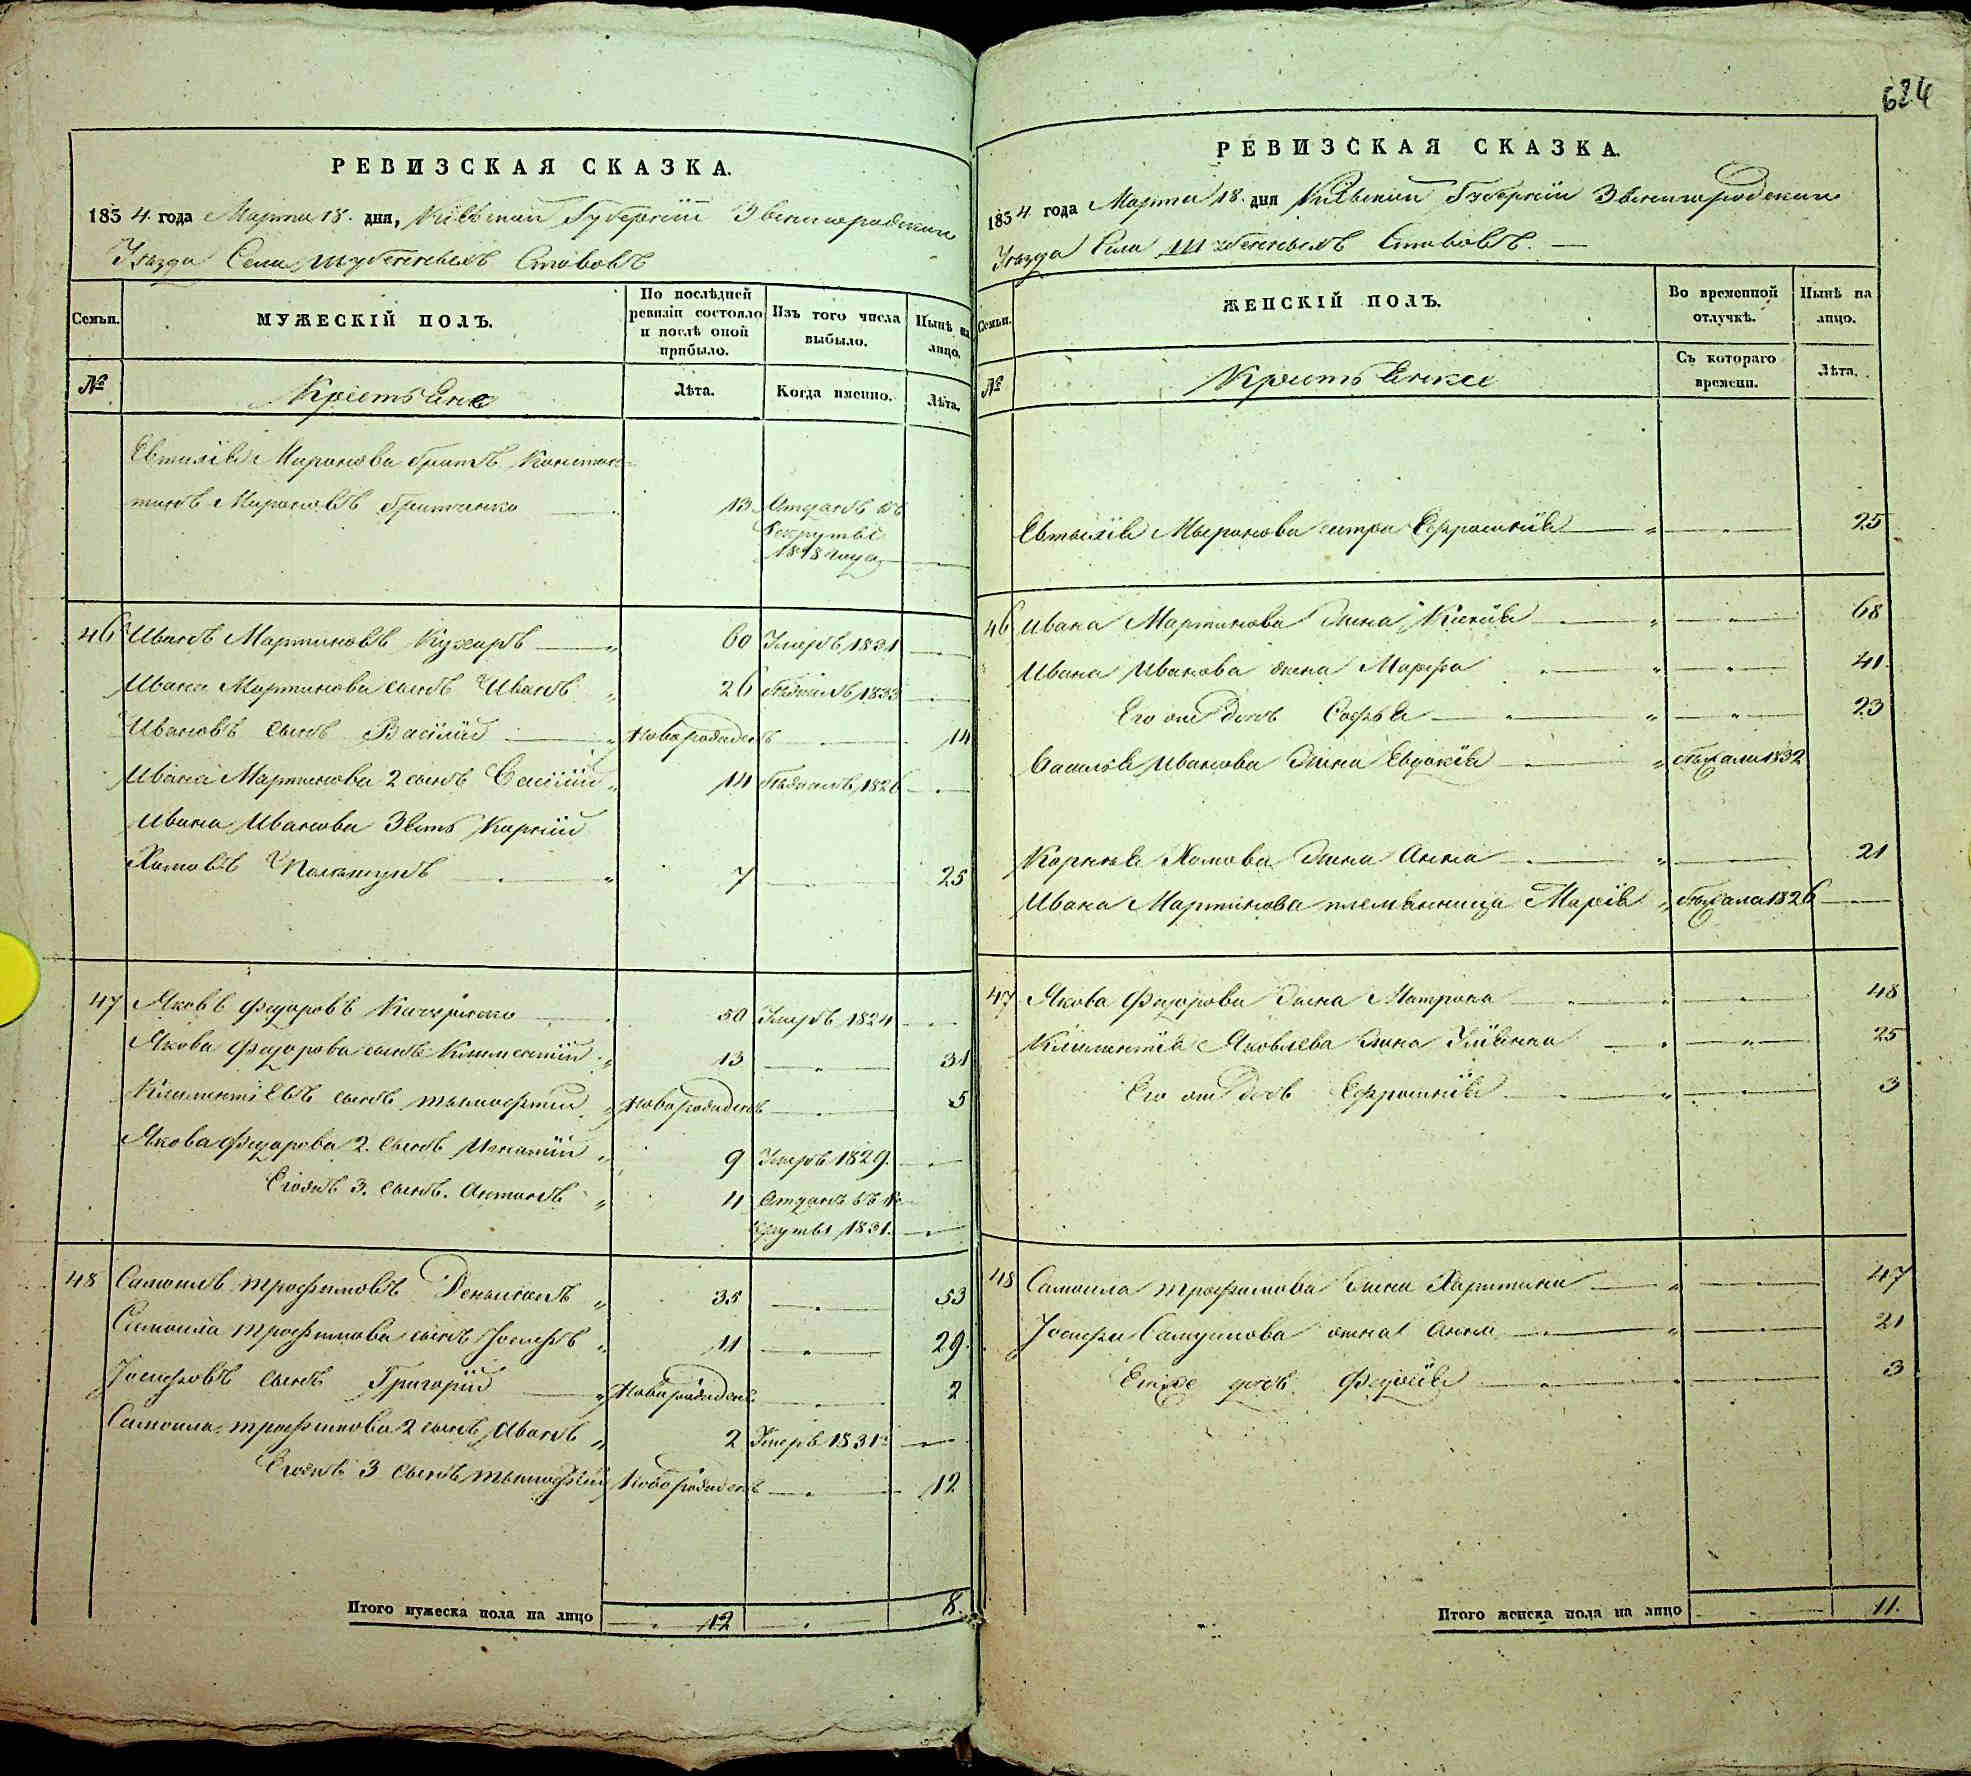 624
РЕВИЗСКАЯ СКАЗКА.
1834. года Марта 18. дня, Кіевской Губерніи Звенигородскаго
Уѣзда Села Шубенныхъ Ставовъ
Семьи.
МУЖЕСКІЙ ПОЛЪ.
По послѣдней ревизіи состояло и послѣ оной прибыло.
Изъ того числа выбыло.
Нынѣ на лицо.
№
Крестьяне
Лѣта.
Когда именно.
Лѣта.
Евтихія Миронова братъ Констан-
тинъ Мироновъ 13 Отданъ въ
Рекруты
1818 года
46 Иванъ Мартиновъ Кухаръ 60 Умеръ 1831
Ивана Мартинова сынъ Иванъ 26 1833
Ивановъ сынъ Василій Новорожденъ 14
Ивана Мартинова 2 сынъ 14 1826
Ивана Иванова Зять Корній
Хомовъ 7 25
47 Яковъ Федоровъ 50 Умеръ 1824
Якова Федорова сынъ Климентій 13 31
Климентіевъ сынъ Тымофтій Новорожденъ 5
Якова Федорова 2. сынъ Игнатій 9 Умеръ 1829.
Егожъ 3. сынъ. Антонъ 4 Отданъ въ Ре-
круты 1831.
48 Самоилъ Трофимовъ 35 53
Самоила Трофимова сынъ Іосифъ 11 29.
Іосифовъ сынъ Григорій Новорожденъ 2
Самоила Трофимова 2 сынъ Иванъ 2 Умеръ 1831
Егожъ 3 сынъ Тымофтій Новорожденъ 12
Итого мужеска пола на лицо 12 8
РЕВИЗСКАЯ СКАЗКА.
1834 года Марта 18. дня Кіевской Губерніи Звенигородскаго
Уѣзда Села Шубенныхъ Ставовъ.
Семьи.
ЖЕНСКІЙ ПОЛЪ.
Во временной отлучкѣ.
Нынѣ на лицо.
№
Крестьянки
Съ котораго времени.
Лѣта.
Евтихія Мыронова сестра Ефросинія 25
46 Ивана Мартинова жена Ксенія 68
Ивана Иванова жена Марфа 41
Его дочь Софья 23
Василія Иванова жена Евдокія бѣжала 1832
Корнія Хомова жена Анна 21
Ивана Мартинова племянница Марія бѣжала 1826
47 Якова Федорова жена Матрона 48
Климентія Яковлева жена Уліанна 25
Его дочь Ефросинія 3
48 Самоила Трофимова жена Харитина 47
Іосифа Самуилова жена Анна 21
дочь Федосія 3
Итого женска пола на лицо 11.